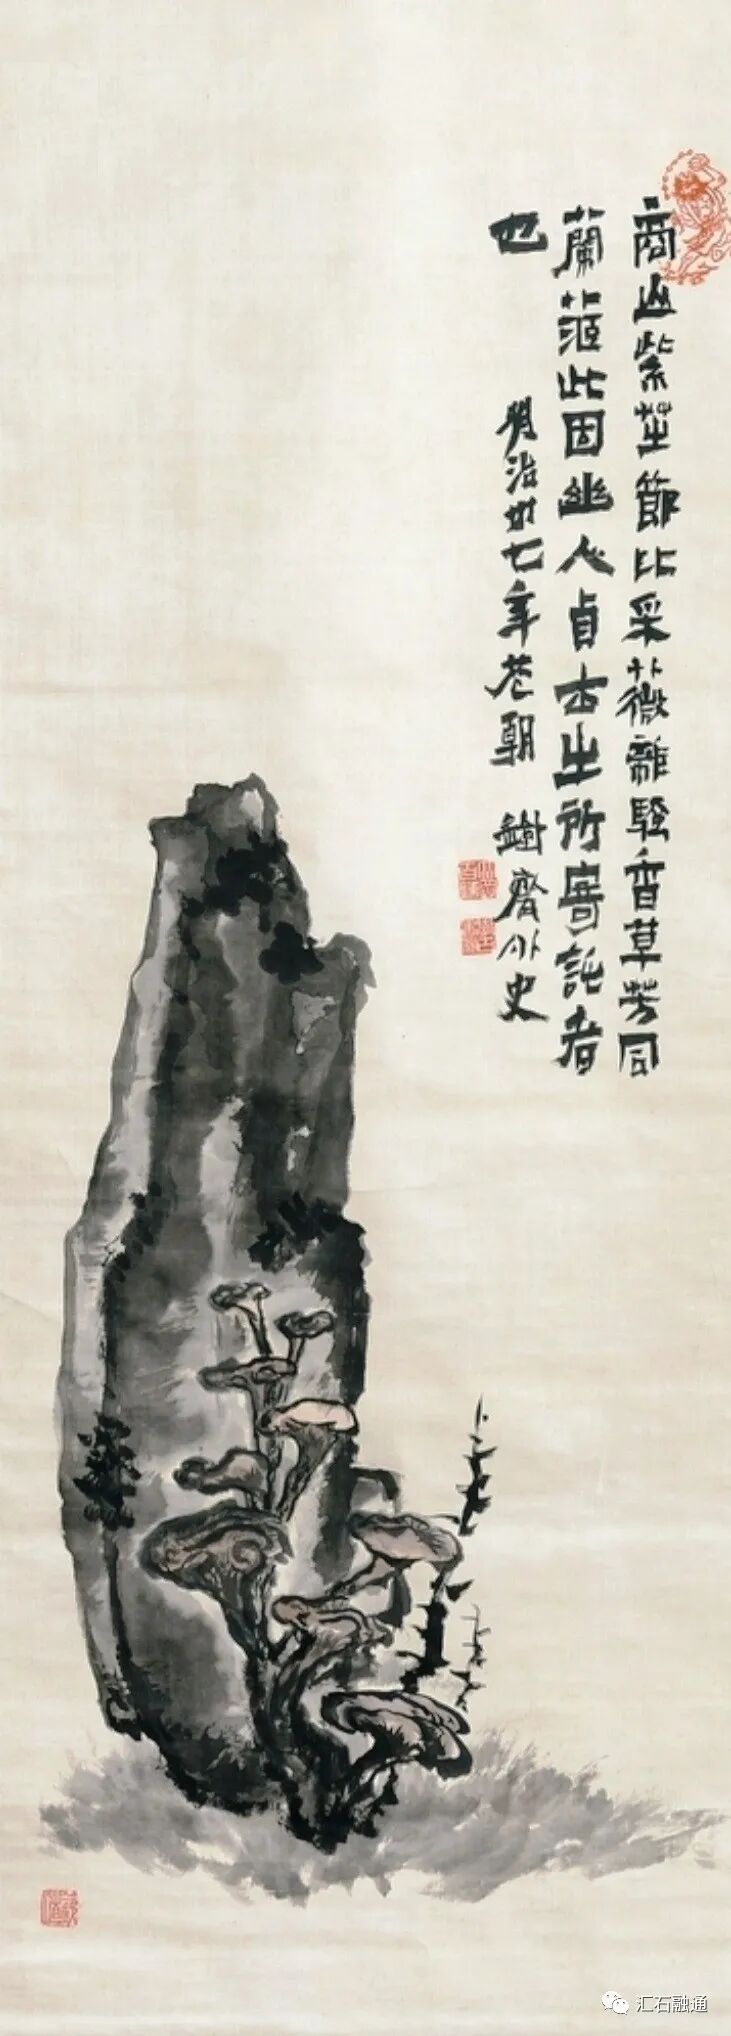 商山紫芝節比采薇離騷香草芳同
蘭茝此固幽人貞士之所寄託者
也 明治卅七年花朝 鐵齋外史
汇石融通